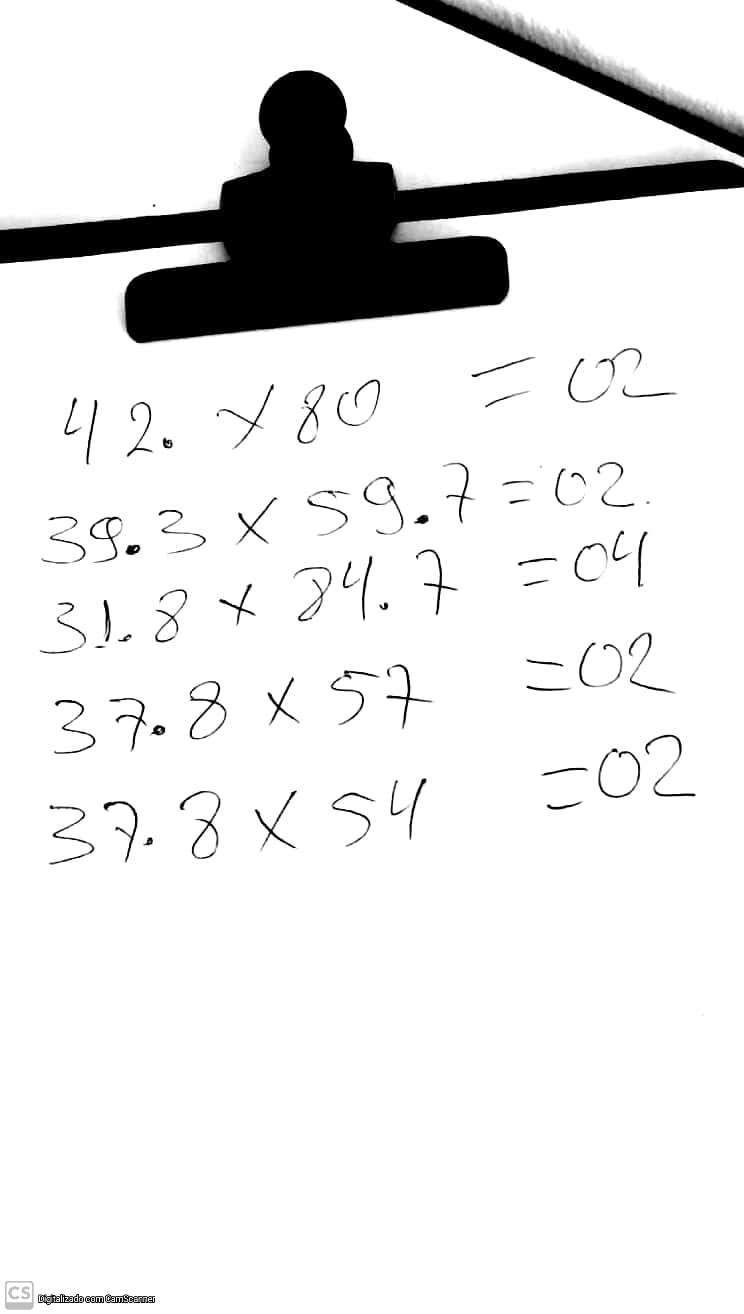 42. x 80 = 02
39.3 x 59.7 = 02.
31.8 x 84.7 = 04
37.8 x 57 = 02
37.8 x 54 = 02
CS Digitalizado com CamScanner